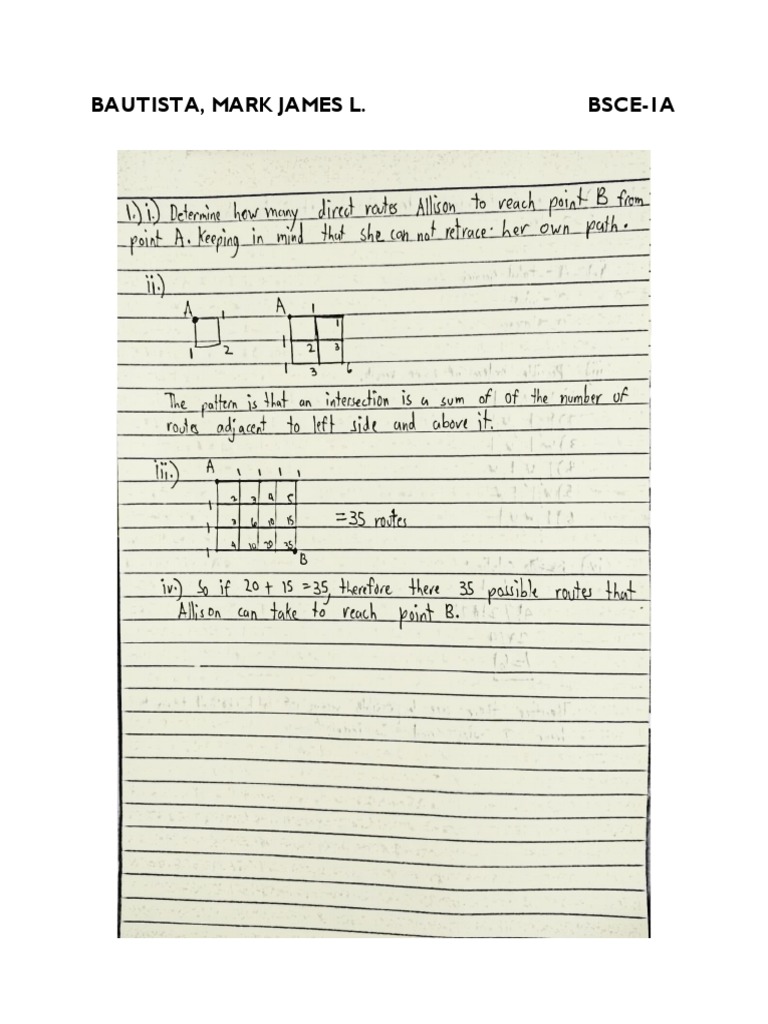 BAUTISTA, MARK JAMES L. BSCE-1A
1.) i.) Determine how many direct routes Allison to reach point B from
point A. Keeping in mind that she can not retrace her own path.
ii.)
A 1 A 1
1
1 2 3
1 2 1 3 6
The pattern is that an intersection is a sum of of the number of
routes adjacent to left side and above it.
iii.) A 1 1 1 1
1 2 3 4 5
1 3 6 10 15 = 35 routes
1 4 10 20 35
B
iv.) So if 20 + 15 = 35, therefore there 35 possible routes that
Allison can take to reach point B.